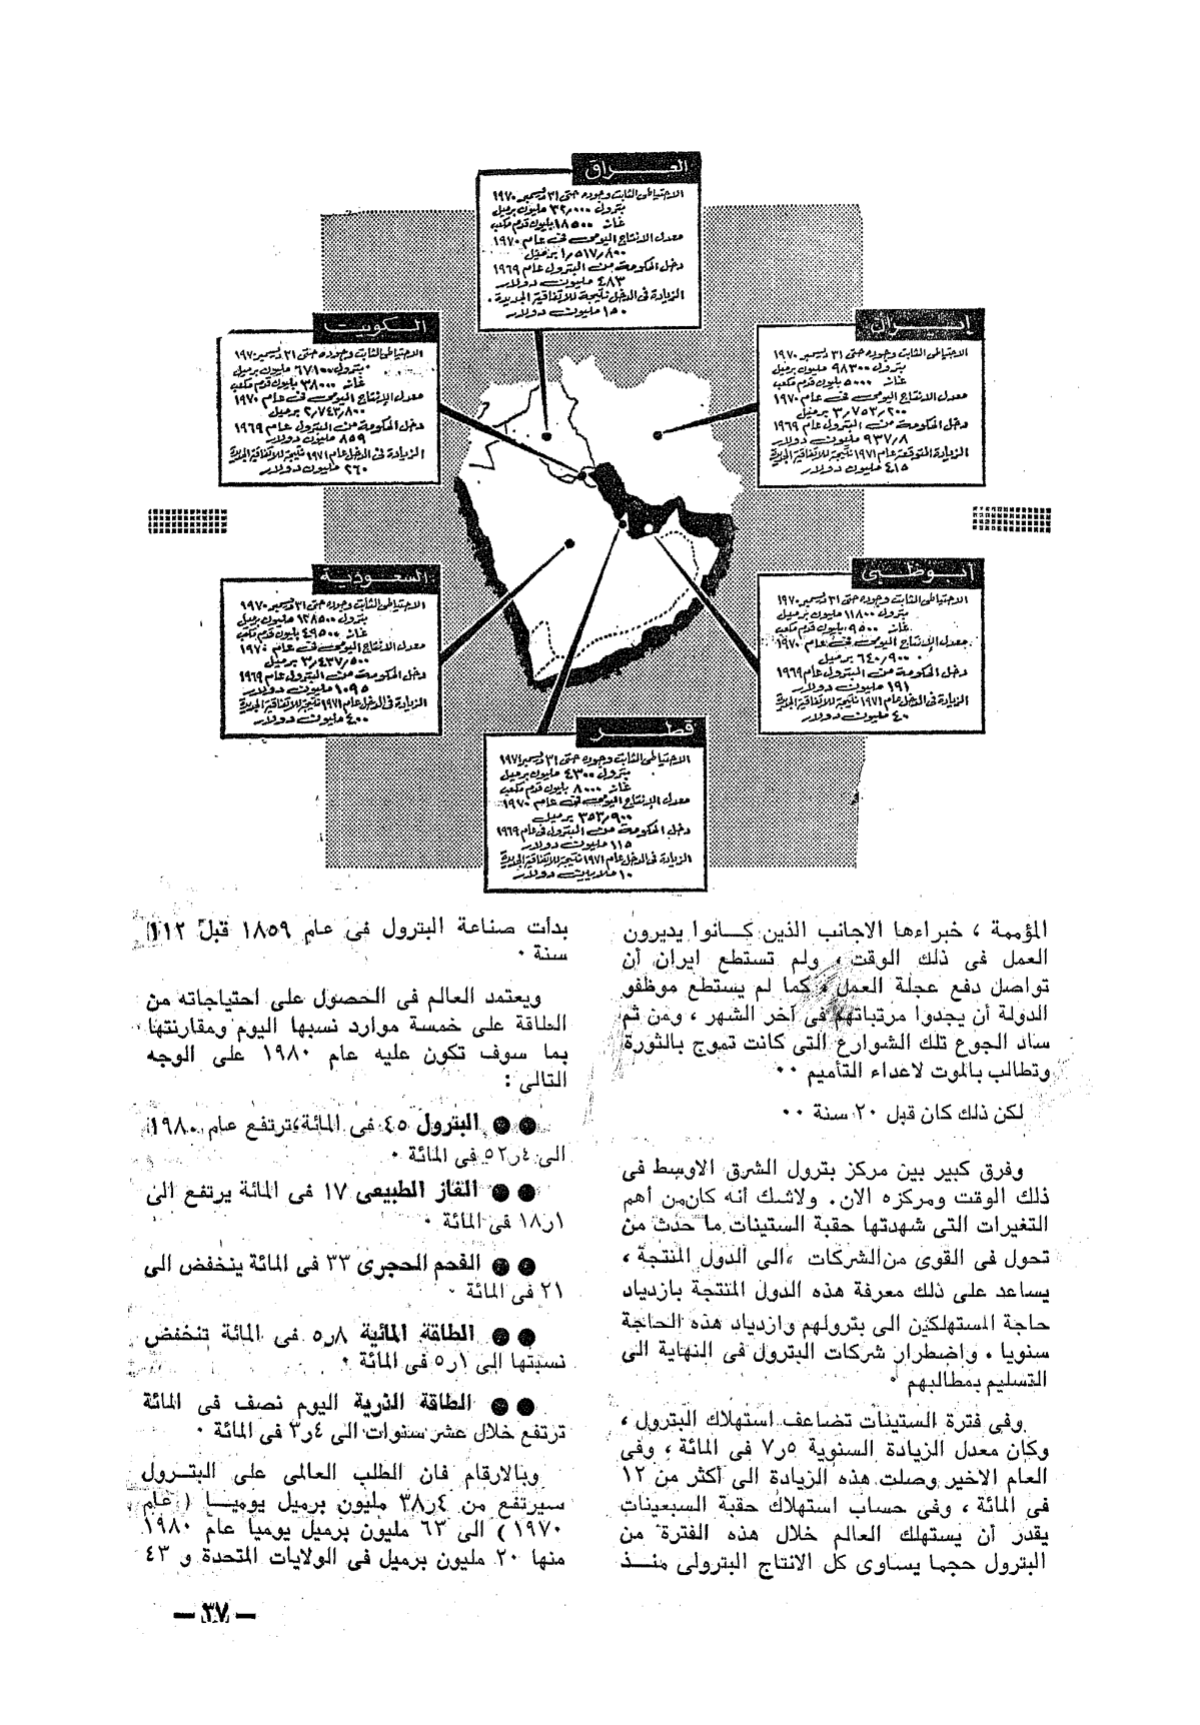 العـــراق
الاحتياطى الثابت وجوده حتى ٣١ ديسمبر ١٩٧٠
بترول ٣٢٫٠٠٠ مليون برميل
غاز ١٨٥٠٠ بليون قدم مكعب
معدل الانتاج اليومى فى عام ١٩٧٠
١٫٥١٧٫٨٠٠ برميل
دخل الحكومة من البترول عام ١٩٦٩
٤٨٣ مليون دولار
الزيادة فى الدخل نتيجة للاتفاقية الجديدة
١٥٠ مليون دولار
إيـــران
الاحتياطى الثابت وجوده حتى ٣١ ديسمبر ١٩٧٠
بترول ٩٨٣٠٠ مليون برميل
غاز ٥٠٠٠ بليون قدم مكعب
معدل الانتاج اليومى فى عام ١٩٧٠
٣٫٧٥٣٫٢٠٠ برميل
دخل الحكومة من البترول عام ١٩٦٩
٩٣٧٫٨ مليون دولار
الزيادة المتوقعة عام ١٩٧١ نتيجة للاتفاقية الجديدة
٤١٥ مليون دولار
الـكويت
الاحتياطى الثابت وجوده حتى ٣١ ديسمبر ١٩٧٠
بترول ٦٧١٠٠ مليون برميل
غاز ٣٨٠٠٠ بليون قدم مكعب
معدل الإنتاج اليومى فى عام ١٩٧٠
٢٫٧٤٣٫٨٠٠ برميل
دخل الحكومة من البترول عام ١٩٦٩
٨٥٩ مليون دولار
الزيادة فى الدخل عام ١٩٧١ نتيجة للاتفاقية الجديدة
٢٦٠ مليون دولار
السعـودية
الاحتياطى الثابت وجوده حتى ٣١ ديسمبر ١٩٧٠
بترول ١٢٨٥٠٠ مليون برميل
غاز ٤٩٥٠٠ بليون قدم مكعب
معدل الإنتاج اليومى فى عام ١٩٧٠
٣٫٤٣٧٫٥٠٠ برميل
دخل الحكومة من البترول عام ١٩٦٩
١٠٩٥ مليون دولار
الزيادة فى الدخل عام ١٩٧١ نتيجة للاتفاقية الجديدة
٤٠٠ مليون دولار
أبـوظبى
الاحتياطى الثابت وجوده حتى ٣١ ديسمبر ١٩٧٠
بترول ١١٨٠٠ مليون برميل
غاز ٩٥٠٠ بليون قدم مكعب
معدل الإنتاج اليومى فى عام ١٩٧٠
٦٤٠٫٩٠٠ برميل
دخل الحكومة من البترول عام ١٩٦٩
١٩١ مليون دولار
الزيادة فى الدخل عام ١٩٧١ نتيجة للاتفاقية الجديدة
٤٠ مليون دولار
قطـــر
الاحتياطى الثابت وجوده حتى ٣١ ديسمبر ١٩٧١
بترول ٤٣٠٠ مليون برميل
غاز ٨٠٠٠ بليون قدم مكعب
معدل الإنتاج اليومى فى عام ١٩٧٠
٣٥٢٫٩٠٠ برميل
دخل الحكومة من البترول فى عام ١٩٦٩
١١٥ مليون دولار
الزيادة فى الدخل عام ١٩٧١ نتيجة للاتفاقية الجديدة
١٠ ملايين دولار
المؤممة ، خبراءها الاجانب الذين كـــانوا يديرون
العمل فى ذلك الوقت ، ولم تستطع ايران أن
تواصل دفع عجلة العمل ، كما لم يستطع موظفو
الدولة أن يجدوا مرتباتهم فى آخر الشهر ، ومن ثم
ساد الجوع تلك الشوارع التى كانت تموج بالثورة
وتطالب بالموت لاعداء التأميم ٠٠
لكن ذلك كان قبل ٢٠ سنة ٠٠
وفرق كبير بين مركز بترول الشرق الاوسط فى
ذلك الوقت ومركزه الان. ولاشك انه كان من أهم
التغيرات التى شهدتها حقبة الستينات ما حدث من
تحول فى القوى من الشركات ، الى الدول المنتجة ،
يساعد على ذلك معرفة هذه الدول المنتجة بازدياد
حاجة المستهلكين الى بترولهم وازدياد هذه الحاجة
سنويا . واضطرار شركات البترول فى النهاية الى
التسليم بمطالبهم ٠
وفى فترة الستينات تضاعف استهلاك البترول ،
وكان معدل الزيادة السنوية ٧٫٥ فى المائة ، وفى
العام الاخير وصلت هذه الزيادة الى أكثر من ١٢
فى المائة ، وفى حساب استهلاك حقبة السبعينات
يقدر أن يستهلك العالم خلال هذه الفترة من
البترول حجما يساوى كل الانتاج البترولى منـــذ
بدأت صناعة البترول فى عام ١٨٥٩ قبل ١١٢
سنة ٠
ويعتمد العالم فى الحصول على احتياجاته من
الطاقة على خمسة موارد نسبها اليوم ومقارنتها
بما سوف تكون عليه عام ١٩٨٠ على الوجه
التالى :
●● البترول ٤٥ فى المائة، ترتفع عام ١٩٨٠
الى ٥٢٫٤ فى المائة ٠
●● الغاز الطبيعى ١٧ فى المائة يرتفع الى
١٨٫١ فى المائة ٠
●● الفحم الحجرى ٣٣ فى المائة ينخفض الى
٢١ فى المائة ٠
●● الطاقة المائية ٥٫٨ فى المائة تنخفض
نسبتها الى ٥٫١ فى المائة ٠
●● الطاقة الذرية اليوم نصف فى المائة
ترتفع خلال عشر سنوات الى ٣٫٤ فى المائة ٠
وبالارقام فان الطلب العالمى على البتـرول
سيرتفع من ٣٨٫٤ مليون برميل يوميـا ( عام
١٩٧٠ ) الى ٦٣ مليون برميل يوميا عام ١٩٨٠
منها ٢٠ مليون برميل فى الولايات المتحدة و ٤٣
— ٣٧ —